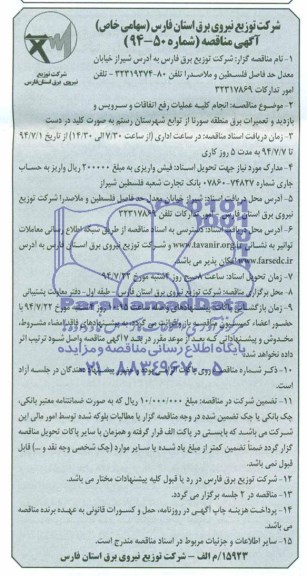 شرکت توزیع نیروی برق استان فارس (سهامی خاص)
آگهی مناقصه (شماره ۵۰-۹۴)
شرکت توزیع
نیروی برق استان فارس
۱- نام مناقصه گزار: شرکت توزیع برق فارس به آدرس شیراز خیابان
معدل حد فاصل فلسطین و ملاصدرا تلفن ۸۰-۳۲۳۱۹۳۷۴
امور تدارکات ۳۲۳۱۷۸۶۹
۲- موضوع مناقصه: انجام کلیه عملیات رفع اتفاقات و سرویس و
بازدید و تعمیرات برق منطقه سورنا از توابع شهرستان رستم به صورت کلید در دست
۳- زمان دریافت اسناد مناقصه: در ساعت اداری (از ساعت ۷/۳۰ الی ۱۴/۳۰) از تاریخ ۹۴/۷/۱
تا ۹۴/۷/۷ به مدت ۵ روز کاری
۴- مدارک مورد نیاز جهت تحویل اسناد: فیش واریزی به مبلغ ۲۰۰۰۰۰ ریال واریز به حساب
جاری شماره ۰۷۸۶۰۰۷۴۸۲۷ بانک تجارت شعبه فلسطین شیراز
۵- آدرس محل دریافت اسناد: شیراز خیابان معدل حد فاصل فلسطین و ملاصدرا شرکت توزیع
نیروی برق استان فارس - امور تدارکات تلفن ۳۲۳۱۷۸۶۹
۶- آدرس محل دریافت اسناد: دسترسی به اسناد مناقصه از طریق شبکه اطلاع رسانی معاملات
توانیر به نشانی www.tavanir.org.ir و شرکت توزیع برق استان فارس به آدرس
www.farsedc.ir امکان پذیر می باشد
۷- زمان تحویل اسناد: ساعت ۸ صبح روز شنبه مورخ ۹۴/۷/۲۲
۸- محل برگزاری مناقصه: شرکت توزیع نیروی برق استان فارس - طبقه اول - دفتر معاونت پشتیبانی
حضور اعضاء کمیسیون مناقصه بازگشایی می گردد به پیشنهادهای فاقد امضاء مشروط،
مخدوش و پیشنهاداتی که بعد از موعد مقرر در بند ۷ آگهی مناقصه واصل شود ترتیب اثر
داده نخواهد شد
پایگاه اطلاع رسانی مناقصه و مزایده
۰۲۱-۸۸۳۴۹۶۷۰-۵
است.
۱۱- تضمین شرکت در مناقصه: مبلغ ۱۰/۰۰۰/۰۰۰ ریال که به صورت ضمانتنامه معتبر بانکی،
چک بانکی یا چک تضمین شده در وجه مناقصه گزار یا مطالبات بلوکه شده توسط امور مالی این
شرکت می باشد که بایستی در پاکت الف قرار گرفته و همزمان با سایر پاکات تحویل مناقصه
گزار گردد ضمناً تضمین کمتر از مبلغ یاد شده یا سایر موارد (چک شخصی وجه نقد و ...) قابل
قبول نمی باشد.
۱۲- شرکت توزیع برق فارس در رد یا قبول کلیه پیشنهادات مختار می باشد.
۱۳- مناقصه در ۲ جلسه برگزار می گردد.
۱۴- پرداخت هزینه چاپ آگهی در روزنامه، حمل و کسورات قانونی به عهده برنده مناقصه
می باشد.
۱۵- سایر اطلاعات و جزئیات مربوط در اسناد مناقصه مندرج است.
۱۵۹۲۳/م الف - شرکت توزیع نیروی برق استان فارس